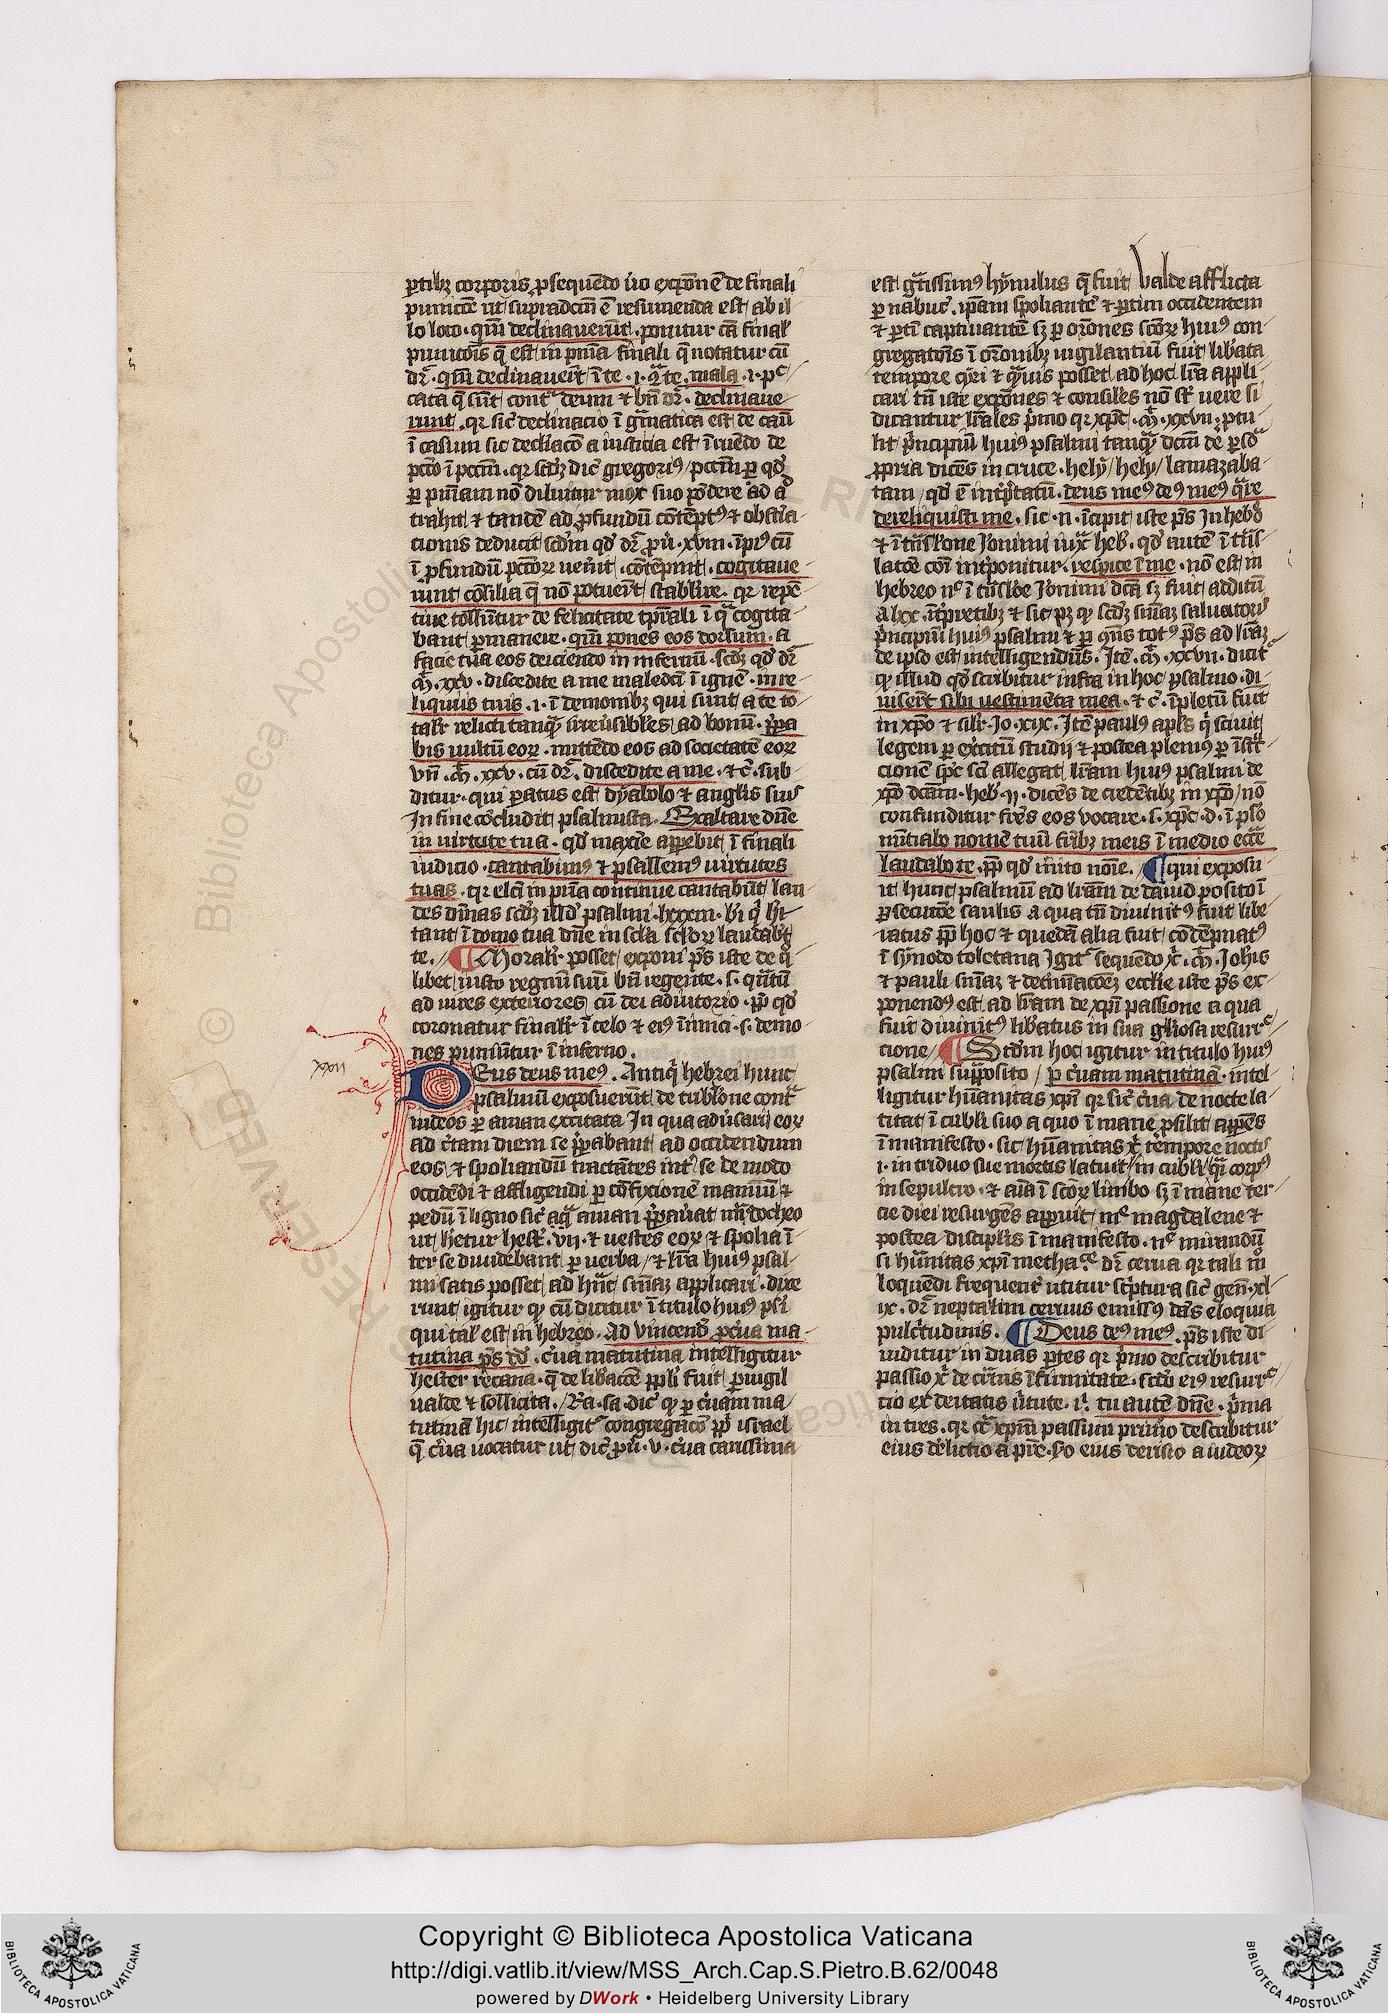 ꝑtibꝫ corporis ꝓsequēdo ũo expōnē de finali
punicōē ut supradc̄m ē resumenda est ab il
lo loco · qm̄ declinaverūt · ponitur cā final̕
punicōis q̄ est in pn̄a finali q̄ notatur cū
dr̄ · qm̄ declinaverūt ī te · i · ꝯͣ te mala · i · pcͨ
cata q̄ sūt contͣ deum et bn̄ dr̄ · declinave
runt · qr sic̄ declinacio ī gͣmatica est de cāu
ī casum sic declīacō a iusticia est ī ruēdo de
pctō ī pctm̄ · qr scd̄ꝫ dic̄ gregoriꝰ pctm̄ ꝙ
ꝑ pn̄iam nō diluitur mox suo pōdere ad aͣ
trahit et tandē ad ꝓfundū cōtēptꝰ et obstīa
cionis deducit scd̄m qd̕ dr̄ ꝓu̕ · xviii · īpiꝰ cū
ī ꝓfundū pctōꝝ venīt cōtēpnit · cogitave
runt cōsilia q̄ nō potuerūt stabilire · qr repc̄
tive tollūtur de felicitate tp̄rali ī qͣ cogita
bant ꝑmanere · qm̄ pones eos dorsum · a
facie tua eos deiciendo in infernū · scd̄ꝫ qd̕ dr̄
m̄ͭ · xxv · discedite a me maledicti ī ignē · in re
liquiis tuis · i · ī demonibꝫ qui sunt a te to
talit̕ relicti tanqͣ irreūsibiles ad bonū · p̄pa
bis vultū eoꝝ · mittēdo eos ad societatē eoꝝ
vn̄ · m̄ͭ · xxv · cū dr̄ · discedite a me · ⁊c̄ · sub
ditur · qui ꝑatus est dyabolo et anglis suis
In fine cōcludit psalmista · Exaltare dn̄e
in virtute tua · qd̕ maxīe apꝑebit ī finali
iudicio · cantabimꝰ et psallemꝰ virtutes
tuas · qr elc̄i in pr̄ia continue cantabūt lau
des divīas scd̄ꝫ illd̕ psalmi · lxxxiii · bt̄i q̇ hī
tant ī domo tua dn̄e in scl̄a scl̄oꝝ laudabūt
te · ¶ Moralit̕ posset exponi ps̄ iste de qͦ
libet iusto regnū suū bn̄ regente · s · qn̄tū
ad vires exteriores cū dei adiutorio · ꝓp̄ qd̕
coronatur finalit̕ ī celo et eiꝰ īimici · s · demo
nes puniūtur ī inferno ·
Deus deus meꝰ · Antiqͥ hebrei hunc
psalmū exposuerūt de tribl̄one contͣ
iudeos ꝑ aman excitata In qua adūsarii eoꝝ
ad c̄tam diem se p̄ꝑabant ad occidendum
eos et spoliandū tractātes int̕ se de modo
occidēdi et affligendi ꝑ cōfixionē manuū et
pedū ī ligno sic̄ aqͣ aman p̄ꝑav̕at mr̄docheo
ut hr̄etur hest̕ · vii · et vestes eoꝝ et spolia ī
ter se dividebant ꝑ verba et lr̄a huiꝰ psal
mi satis posset ad hūc sn̄iaꝫ applicari · dixe
runt igitur ꝙ cū dicitur ī titulo huiꝰ psī
qui tal̕ est in hebreo · Ad vincend̕ p̄ c̕va ma
tutina ps̄ dd̕ · c̕va matutina intelligitur
hester regina · q̄ de lib̕acōē ppl̄i fuit ꝑvigil
valde et sollicita · Ra · sa · dic̄ ꝙ ꝑ c̕vam ma
tutinā hic intelligitͬ congregacō ppl̄i israel
q̄ c̕va vocatur ut dic̄ ꝓu̕ · v · c̕va carissima
est gͣtissimꝰ hy̆nulus q̄ fuit valde afflicta
ꝑ nabuc̄ · ip̄am spoliantē et ꝑtim occidentem
et ꝑtī captivantē sꝫ ꝑ or̄ones sc̄oꝝ huiꝰ con
gregatōis ī or̄onibꝫ vigilantiū fuit lib̕ata
tempore cyri et qͣvis posset ad hoc lr̄a appli
cari tn̄ iste expōnes et consiles nō sūt vere si
dicantur lr̄ales pͥmo qr xp̄c · m̄ͭ · xxvii · ꝓtu
lit pͥncipiū huiꝰ psalmi tanqͣ dc̄m de ꝑsoͣ
ꝓpria dicēs in cruce · hely hely lamazaba
tani qd̕ ē int̕p̄tatū · deus meꝰ deꝰ meꝰ qͣre
dereliquisti me · sic · n · īcipit iste ps̄ in hebͦ
et ī tn̄sl̄one Ieronimi iuxͣ heb̕ · qd̕ autē ī trās
latōē cōi int̕ponitur · respice ī me · nō est in
hebreo nͨ ī trāsl̄oē Ieronimi dc̄a sꝫ fuit additū
a lxx · īt̕pretibꝫ et sic pꝫ ꝙ scd̄ꝫ sn̄iaꝫ salvatoris
pͥncipiū huiꝰ psalmi et ꝑ qn̄s totꝰ ps̄ ad lr̄aꝫ
de ipso est intelligendus · Itē · m̄ͭ · xxvii · dicitͬ
ꝙ illud qd̕ scribitur infra in hoc psalmo · di
viserūt sibi vestimēta mea · ⁊c̄ · īpletū fuit
in xp̄o et silr̄ · Io · xix · Itē paulꝰ apl̄s qͥ scivit
legem ꝑ exc̕itiū studii et postea plenius ꝑ īstͨ
cionē spc̄ sc̄i allegat lr̄am huiꝰ psalmi de
xp̄o dc̄am · heb̕ · ii · dicēs de credētibꝫ in xp̄o nō
confunditur fr̄es eos vocare · s · xp̄c · d · ī pso
nūtiabo nomē tuū frībꝫ meis ī medio ecc̄e
laudabo te · ꝓp̄ qd̕ m̕ito noīe · ¶ qui exposu
it hunc psalmū ad lr̄am de david posito ī
ꝑsecutōē saulis a qua tn̄ divinitꝰ fuit libe
ratus ꝓp̄ hoc et quedā alia fuit cōdēpnatꝰ
ī synodo toletana Igitͬ sequēdo xͥ · m̄ͭ · Iohīs
et pauli sn̄iaꝫ et determīacōeꝫ ecclīe iste ps̄ ex
ponendꝰ est ad lr̄am de xp̄i passione a qua
fuit divinitꝰ lib̕atus in sua gl̄iosa resurrͨ
cione ¶ Scd̄m hoc igitur in titulo huiꝰ
psalmi supposito ꝑ c̕vam matutinā · intel
ligitur hūanitas xp̄i qr sic̄ c̕va de nocte la
titat ī cubili suo a quo ī mane ꝓsilit appēs
ī manifesto · sic hūanitas xͥ tempore noctis
i · in triduo sue mortis latuit in cubili qͣi corpꝰ
in sepulcro · et aīa ī scōꝝ limbo sꝫ ī mane ter
cie diei resurgēs appuit mͤ magdalene et
postea discipl̄is ī manifesto · nͨ mirandū
si hūanitas xp̄i methaͨͤ dr̄ cerva qr tali mͦ
loquēdi frequent̕ utitur scͥptura sic̄ gen̄ · xl
ix · dr̄ neptalim cervus emissꝰ dās eloquia
pulc̕tudinis · ¶ Deus deꝰ meꝰ · ps̄ iste di
viditur in duas ꝑtes qr pͥmo describitur
passio xͥ de carnis īfirmitate · scd̕o eiꝰ resurrͨ
tio ex deitatis v̕tute · iͥ · tu autē dn̄e · pͥma
in tres · qr cͥca xp̄m passum primo describitur
eius d̕elictio a pr̄e · 2o eius derisio a iudeoꝝ
Copyright © Biblioteca Apostolica Vaticana
http://digi.vatlib.it/view/MSS_Arch.Cap.S.Pietro.B.62/0048
powered by DWork • Heidelberg University Library